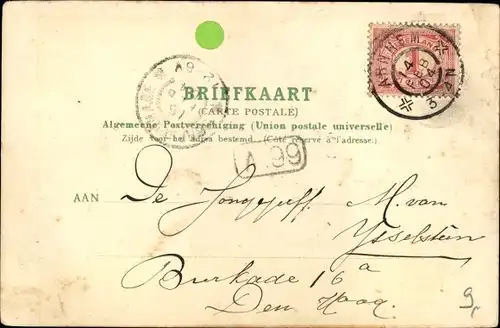 ARNHEM
14 FEB 04
3-4N
BRIEFKAART
(CARTE POSTALE)
Algemeene Postvereeniging (Union postale universelle)
Zijde voor het adres bestemd. (Côté réservé à l'adresse.)
A.99
AAN De Jongejuff. M. van
Ysselstein
Burkade 16a
Den Haag